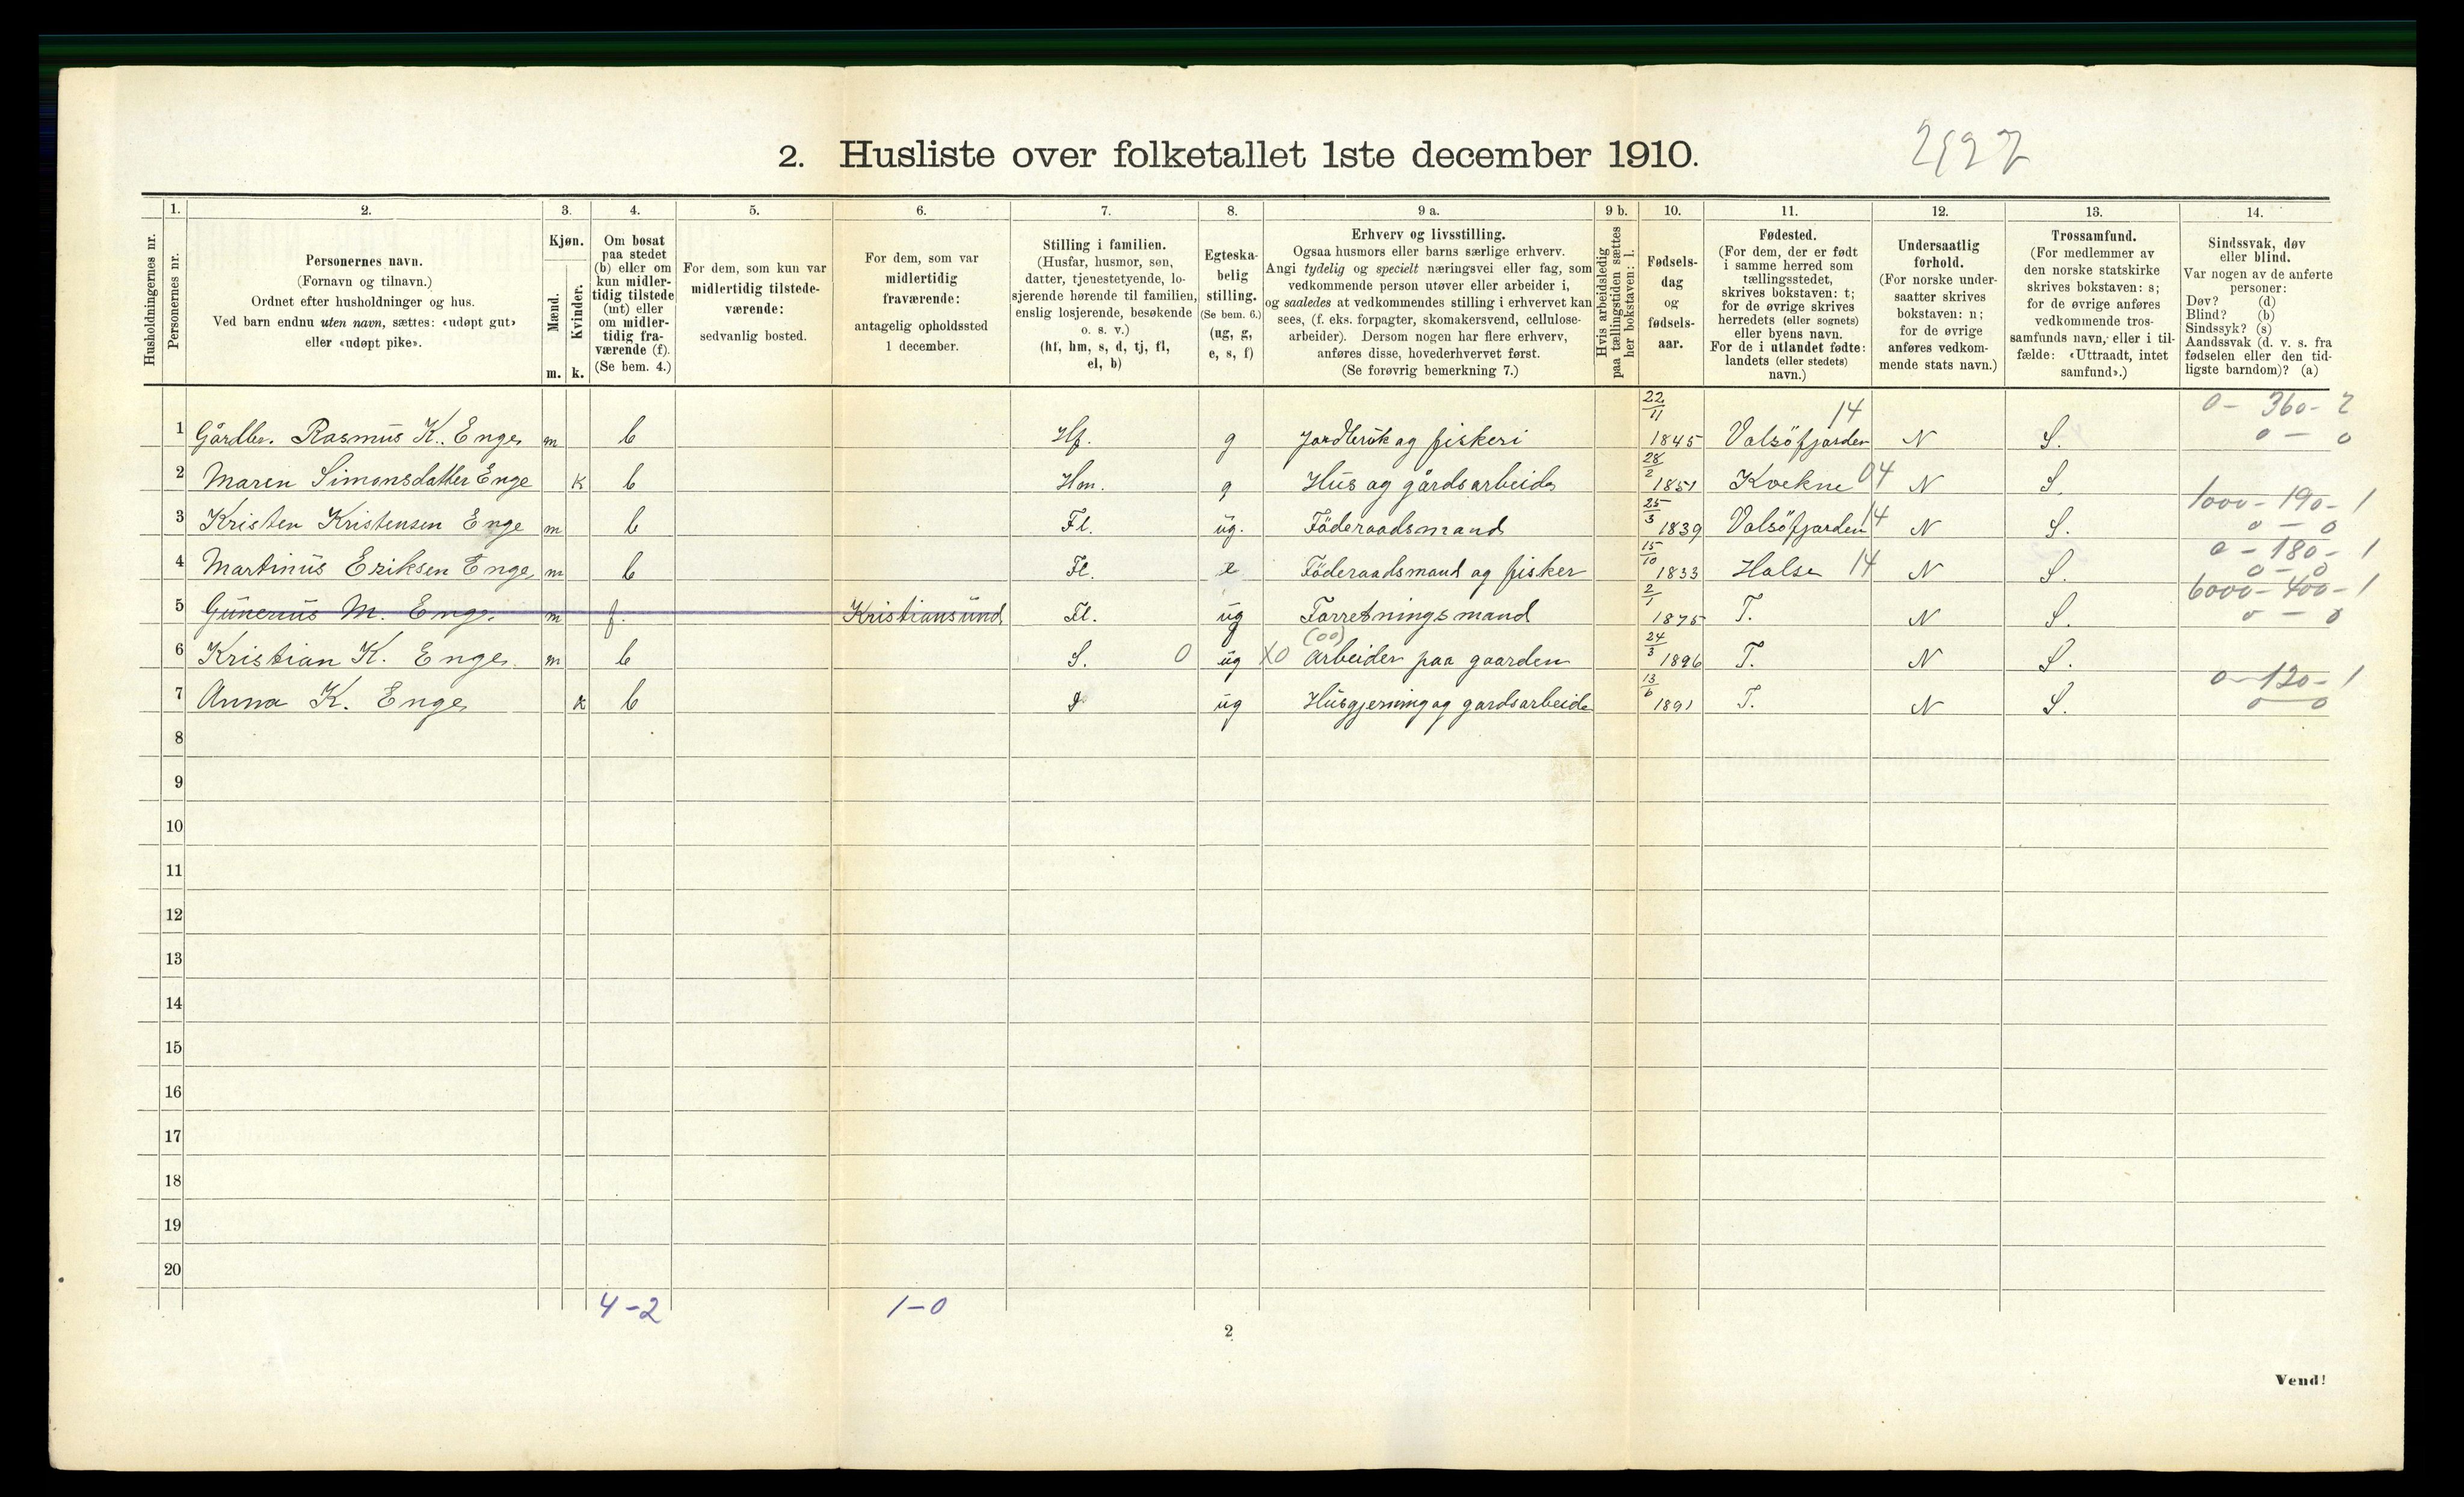 2. Husliste over folketallet 1ste december 1910.
Husholdningernes nr.
1. Personernes nr.
2. Personernes navn. (Fornavn og tilnavn.) Ordnet efter husholdninger og hus. Ved barn endnu uten navn, sættes: «udøpt gut» eller «udøpt pike».
3. Kjøn. Mænd. m. Kvinder. k.
4. Om bosat paa stedet (b) eller om kun midler-tidig tilstede (mt) eller om midler-tidig fra-værende (f). (Se bem. 4.)
5. For dem, som kun var midlertidig tilstede-værende: sedvanlig bosted.
6. For dem, som var midlertidig fraværende: antagelig opholdssted 1 december.
7. Stilling i familien. (Husfar, husmor, søn, datter, tjenestetyende, lo-sjerende hørende til familien, enslig losjerende, besøkende o. s. v.) (hf, hm, s, d, tj, fl, el, b)
8. Egteska-belig stilling. (Se bem. 6.) (ug, g, e, s, f)
9 a. Erhverv og livsstilling. Ogsaa husmors eller barns særlige erhverv. Angi tydelig og specielt næringsvei eller fag, som vedkommende person utøver eller arbeider i, og saaledes at vedkommendes stilling i erhvervet kan sees, (f. eks. forpagter, skomakersvend, cellulose-arbeider). Dersom nogen har flere erhverv, anføres disse, hovederhvervet først. (Se forøvrig bemerkning 7.)
9 b. Hvis arbeidsledig paa tællingstiden sættes her bokstaven: l.
10. Fødsels-dag og fødsels-aar.
11. Fødested. (For dem, der er født i samme herred som tællingsstedet, skrives bokstaven: t; for de øvrige skrives herredets (eller sognets) eller byens navn. For de i utlandet fødte: landets (eller stedets) navn.)
12. Undersaatlig forhold. (For norske under-saatter skrives bokstaven: n; for de øvrige anføres vedkom-mende stats navn.)
13. Trossamfund. (For medlemmer av den norske statskirke skrives bokstaven: s; for de øvrige anføres vedkommende tros-samfunds navn, eller i til-fælde: «Uttraadt, intet samfund».)
14. Sindssvak, døv eller blind. Var nogen av de anførte personer: Døv? (d) Blind? (b) Sindssyk? (s) Aandssvak (d. v. s. fra fødselen eller den tid-ligste barndom)? (a)
1 Gårdbr. Rasmus K. Enge m b Hf. g Jordbruk og fiskeri 22/11 1845 Valsöfjorden 14 N S. 0 - 360 - 2 0 - 0
2 Maren Simonsdatter Enge k b Hm. g Hus og gårdsarbeide 28/2 1851 Kvekne 04 N S.
3 Kristen Kristensen Enge m b Fl. ug. Föderaadsmand 25/3 1839 Valsöfjorden 14 N S. 1000 - 190 - 1 0 - 0
4 Martinus Eriksen Enge m b Fl. e Föderaadsmand og fisker 15/10 1833 Halse 14 N S. 0 - 180 - 1 0 - 0
5 Gunerius M. Enge m f. Kristiansund Fl. ug Forretningsmand 2/1 1875 T. N S. 6000 - 400 - 1 0 - 0
6 Kristian K. Enge m b S. 0 ug X0 (00) Arbeider paa gaarden 24/3 1896 T. N S.
7 Anna K. Enge k b d ug Husgjerning og gardsarbeide 13/6 1891 T. N S. 0 - 120 - 1 0 - 0
8
9
10
11
12
13
14
15
16
17
18
19
20
4-2 1-0
2
Vend!